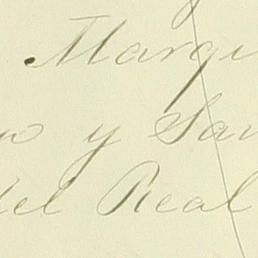 Marqu
y San
del Real